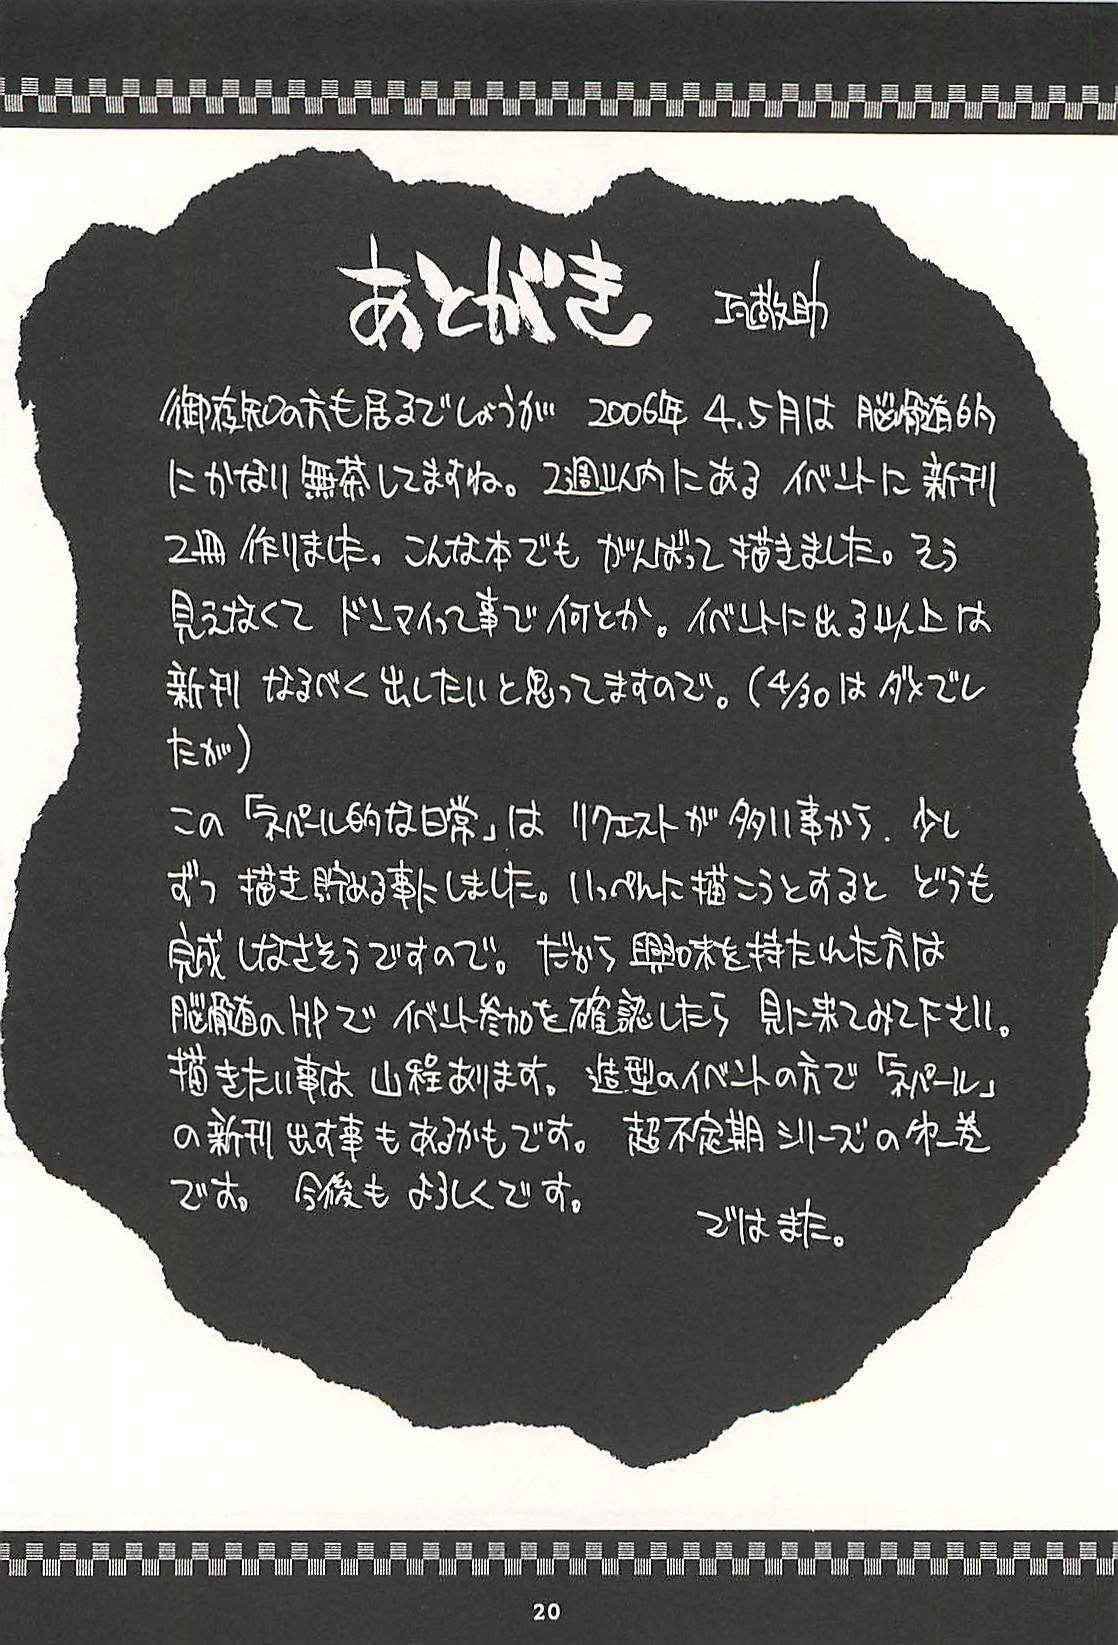 あとがき
敬助
御存知の方も居るでしょうが 2006年 4.5月は 脳髄的
にかなり無茶してますね。2週以内にある イベントに 新刊
2冊 作りました。こんな本でも がんばって描きました。そう
見えなくて ドンマイって事で何とか。イベントに出る以上は
新刊 なるべく 出したいと思ってますので。(4/30はダメでし
たが)
この「ネパール的な日常」は リクエストが多い事から、少し
ずつ 描き貯める事にしました。いっぺんに描こうとすると どうも
完成しなさそうですので。だから興味を持たれた方は
脳髄のHPで イベント参加を確認したら 見に来てみて下さい。
描きたい事は 山程あります。造型のイベントの方で「ネパール」
の新刊出す事もあるかもです。超不定期シリーズの第一巻
です。 今後も よろしくです。
ではまた。
20